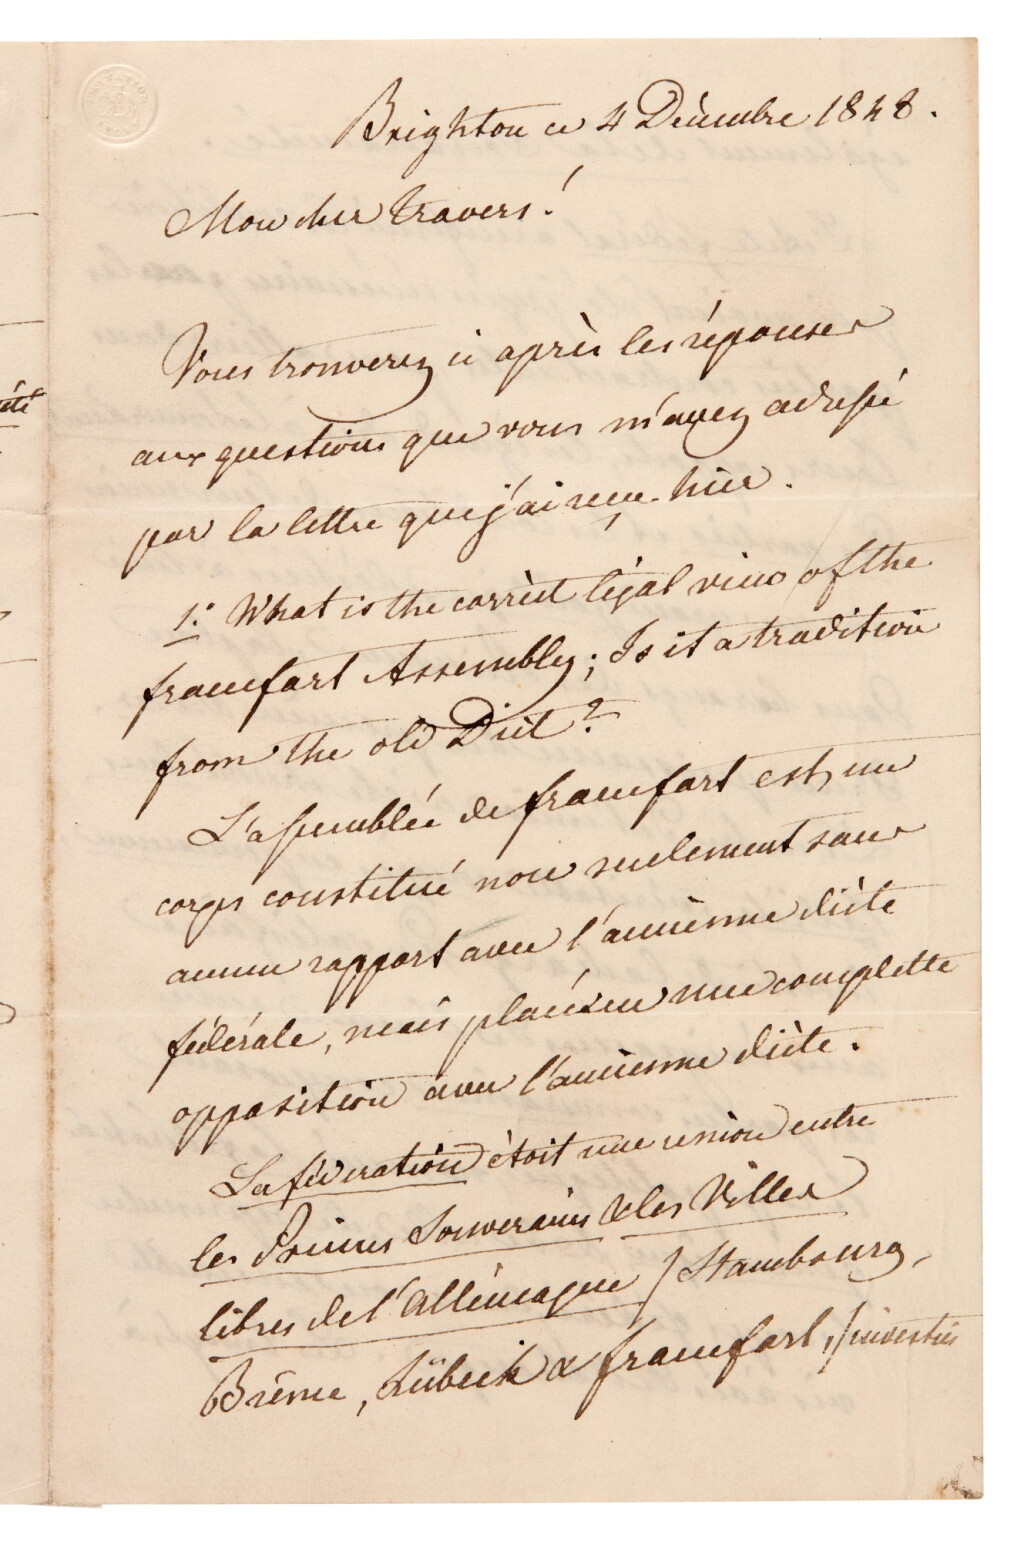 Brighton ce 4 Décembre 1848.
Mon cher Travers!
Vous trouverez ci après les réponses
aux questions que vous m'avez adressé
par la lettre que j'ai reçu hier.
1: What is the corrèct légal view of the
francfort Assembly; Is it a tradition
from the old Diet?
L'assemblée de francfort est, un
corps constitué non seulement sans
aucun rapport avec l'ancienne diète
fédérale, mais placée en une complette
opposition avec l'ancienne diète.
La fédération étoit une union entre
les Princes Souverains & les Villes
libres de l'Allemagne / Hambourg,
Brème, Lübeck & francfort, / investies
été